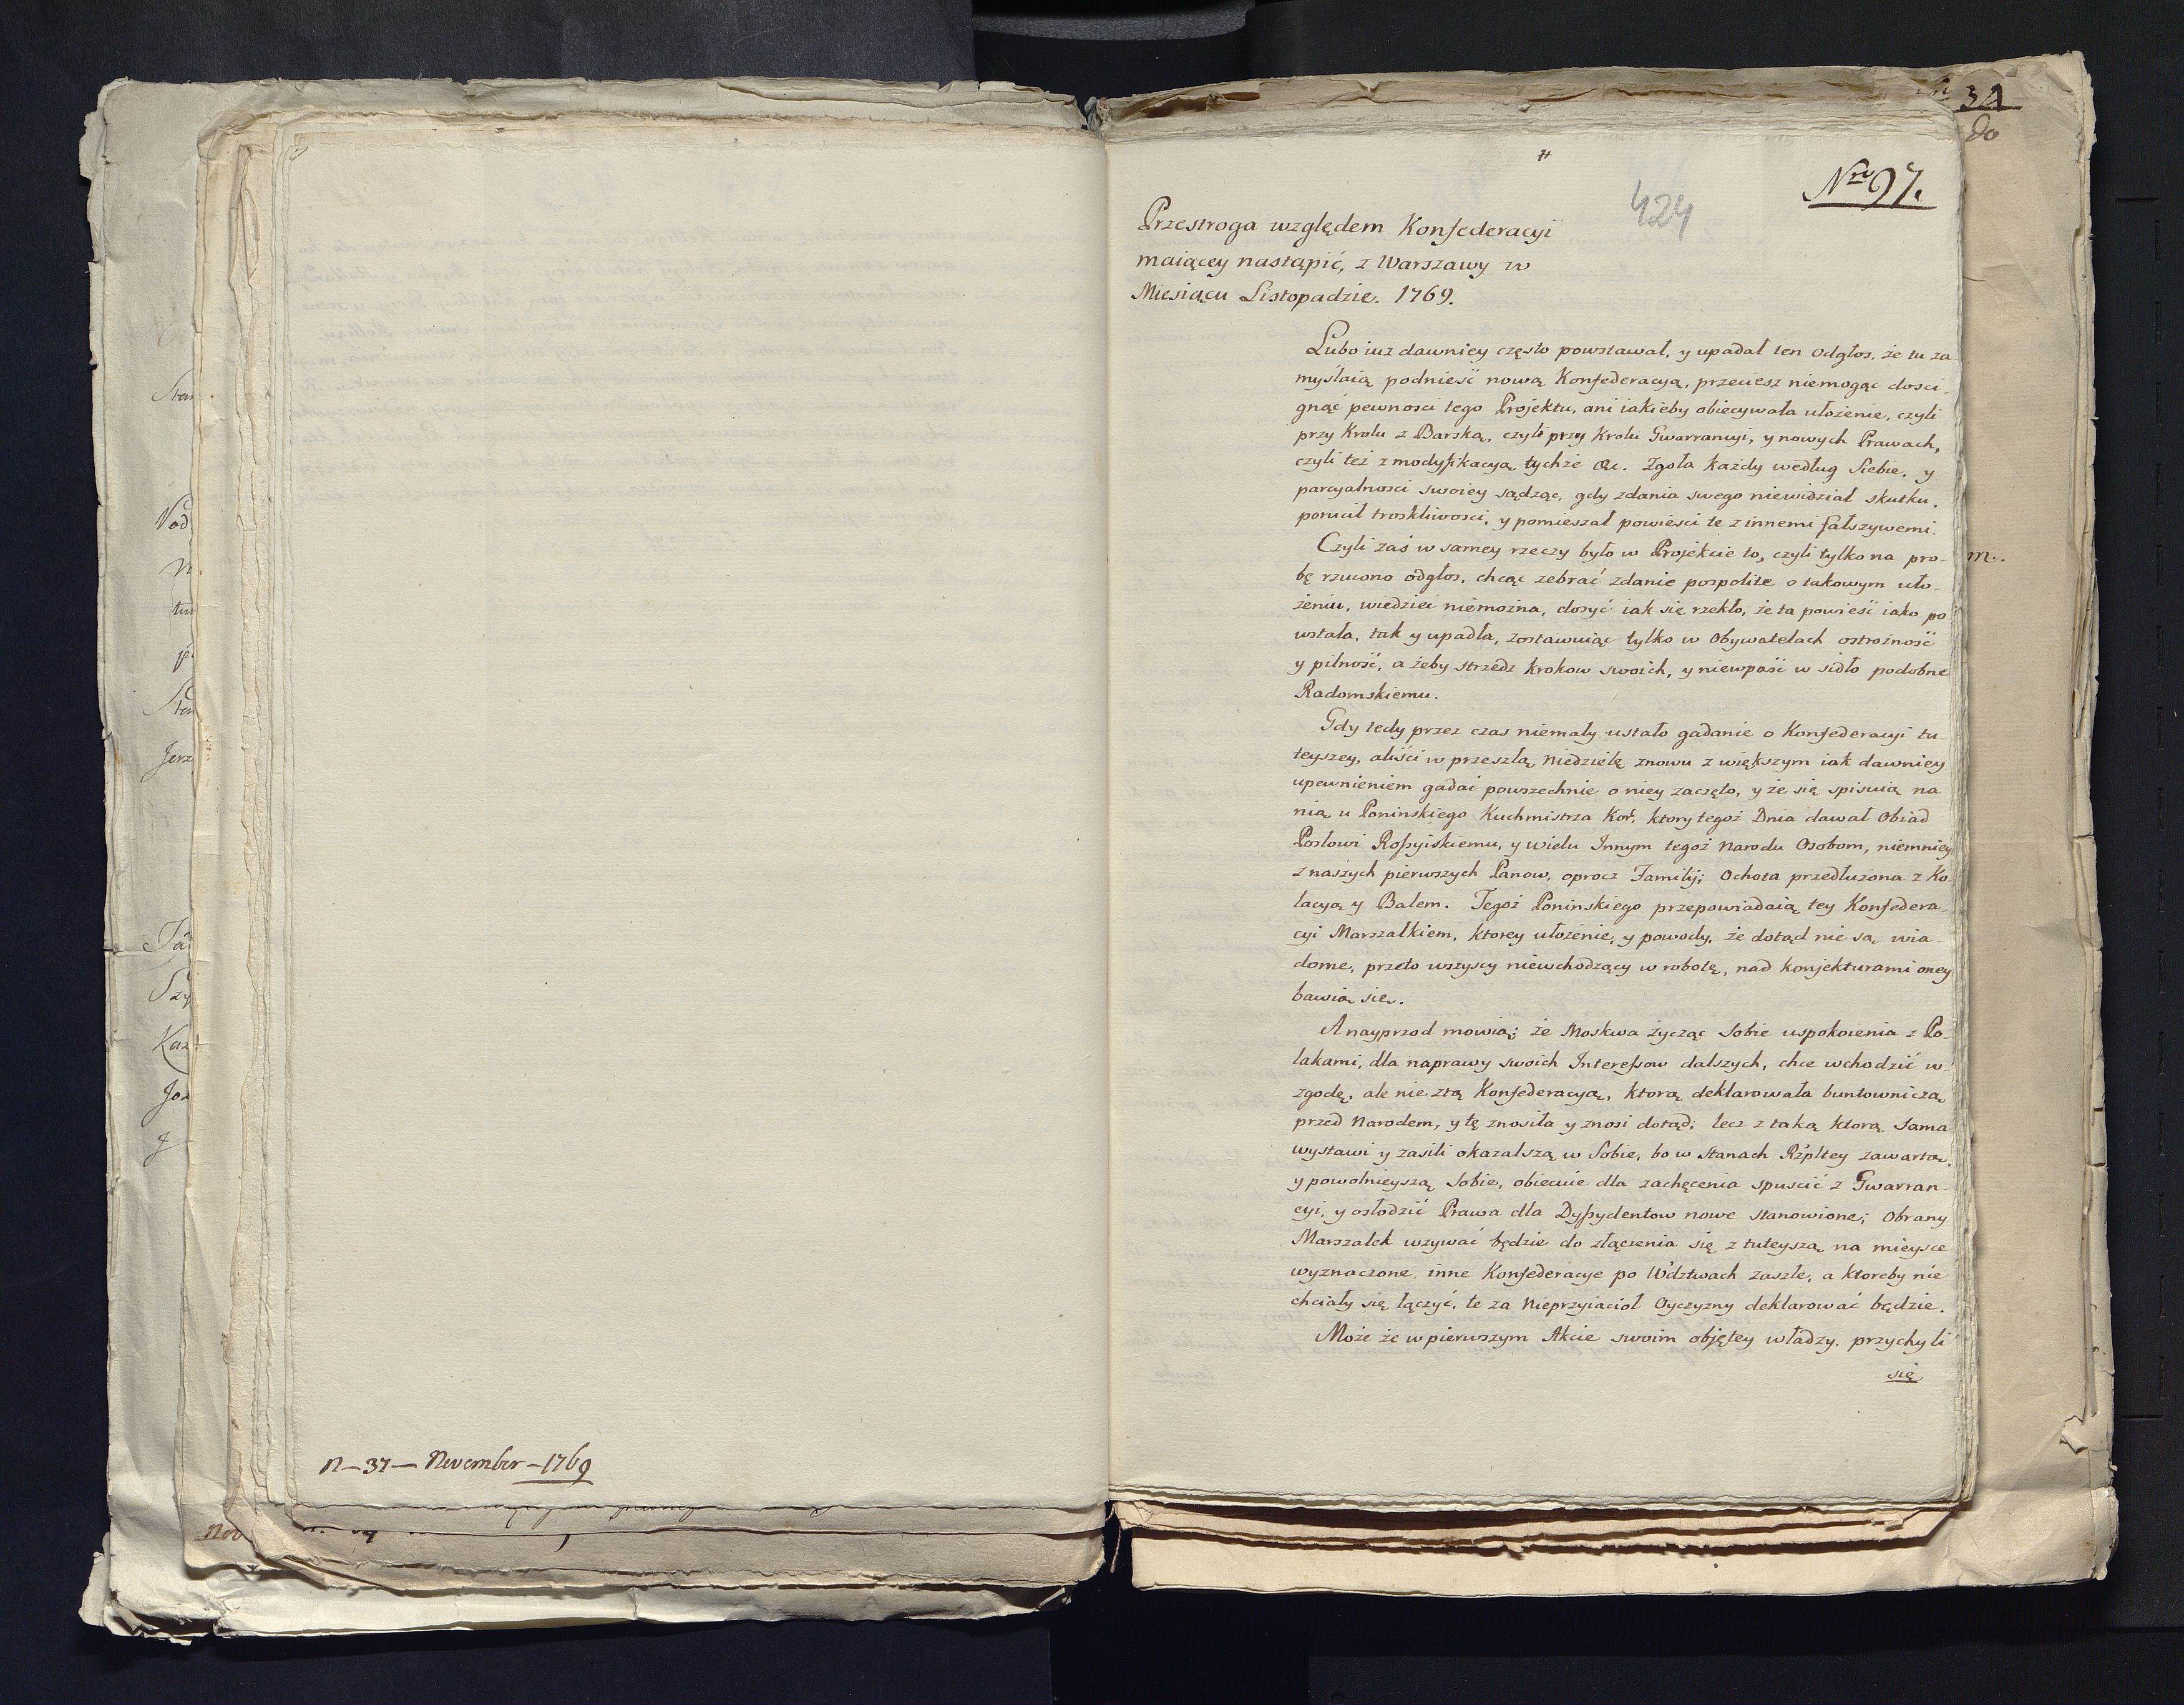 n – 37 – November – 1769
#
Nro 97.
424
Przestroga względem Konfederacyi
maiącey nastąpić, z Warszawy w
Miesiącu Listopadzie. 1769.
Lubo iuz dawniey często powstawał, y upadał ten odgłos, że tu za
myślaią podnieść nową Konfederacyą, przeciesz niemogąc dosci-
gnąć pewnosci tego Projektu, ani iakieby obiecywała ułożenie, czyli
przy Krolu z Barską, czyli przy Krolu Gwarrancyi, y nowych Prawach,
czyli też z modyfikacyą tychże &c. Zgoła każdy według Siebie, y
parcyalnosci swoiey sądząc, gdy zdania swego niewidział skutku,
porucił troskliwosci, y pomieszał powiesci te z innemi fałszywemi.
Czyli zaś w samey rzeczy było w Projekcie to, czyli tylko na pro-
bę rzucono odgłos, chcąc zebrać zdanie pospolite o takowym uło-
żeniu, wiedzieć niemożna, dosyć iak się rzekło, że ta powieść iako po
wstała, tak y upadła, zostawuiąc tylko w Obywatelach ostrożność
y pilność, a żeby strzedz krokow swoich, y niewpaść w sidło podobne
Radomskiemu.
Gdy tedy przez czas niemały ustało gadanie o Konfederacyi tu-
teyszey, aliści w przeszłą Niedzielę znowu z większym iak dawniey
upewnieniem gadać powszechnie o niey zaczęto, y że się spisuią na
nią u Poninskiego Kuchmistrza Kor, ktory tegoż Dnia dawał Obiad
Posłowi Rossyiskiemu, y wielu Innym tegoż Narodu Osobom, niemniey
z naszych pierwszych Panow, oprocz Familij; Ochota przedłużona z Ko
lacyą y Balem. Tegoż Poninskiego przepowiadaią tey Konfedera-
cyi Marszałkiem, ktorey ułożenie, y powody, że dotąd nie są wia-
dome, przeto wszyscy niewchodzący w robotę, nad konjekturami oney
bawią się.
A nayprzod mowią; że Moskwa życząc Sobie uspokoienia z Po-
lakami, dla naprawy swoich Interessow dalszych, chce wchodzić w-
zgodę, ale nie z tą Konfederacyą, ktorą deklarowała buntowniczą
przed Narodem, y tę znosiła y znosi dotąd; lecz z taką ktorą Sama
wystawi y zasili okazalszą w Sobie, bo w Stanach Rzpltey zawartą,
y powolnieyszą Sobie, obiecuie dla zachęcenia spuscić z Gwarran-
cyi, y osłodzić Prawa dla Dyssydentow nowe stanowione; Obrany
Marszałek wzywać będzie do złączenia się z tuteyszą na mieysce
wyznaczone, inne Konfederacye po Wdztwach zaszłe, a ktoreby nie
chciały się łączyć, te za Nieprzyiacioł Oyczyzny deklarować będzie.
Może że w pierwszym Akcie swoim objętey władzy, przychyli
się